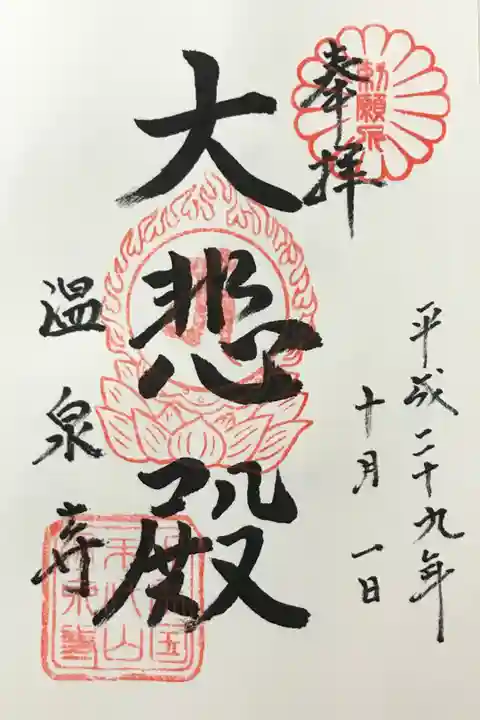 奉拝
勅願所
平成二十九年
十月一日
大悲殿
温泉寺